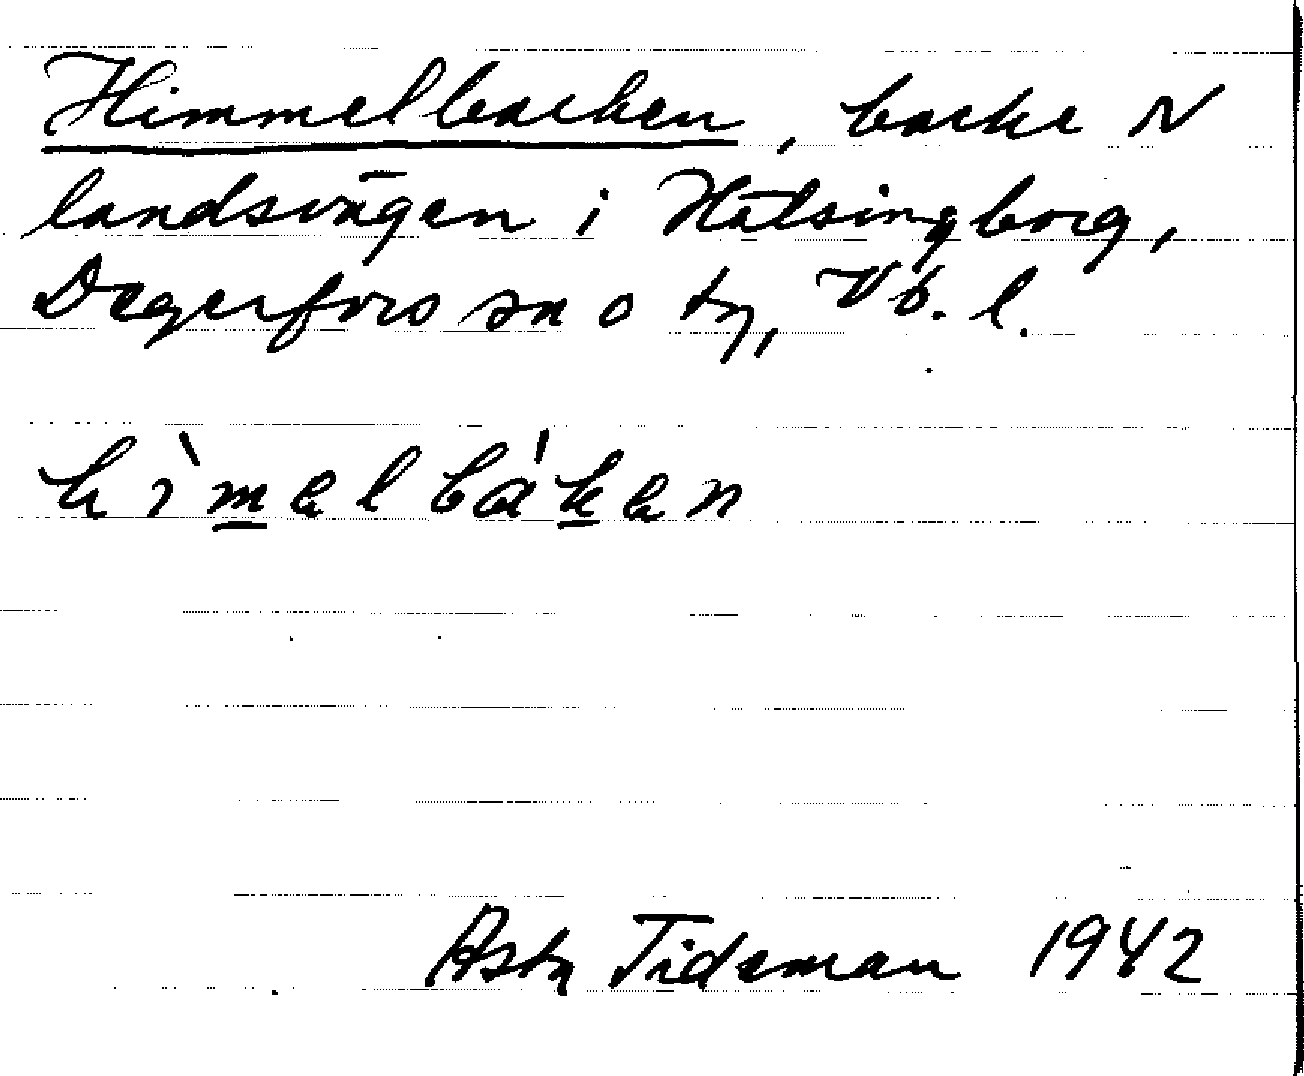 Himmelbacken, backe N
landsvägen i Hälsingborg,
Degerfors sn o tg, Vb. l.
hìmelbáken
Asta Tideman 1942